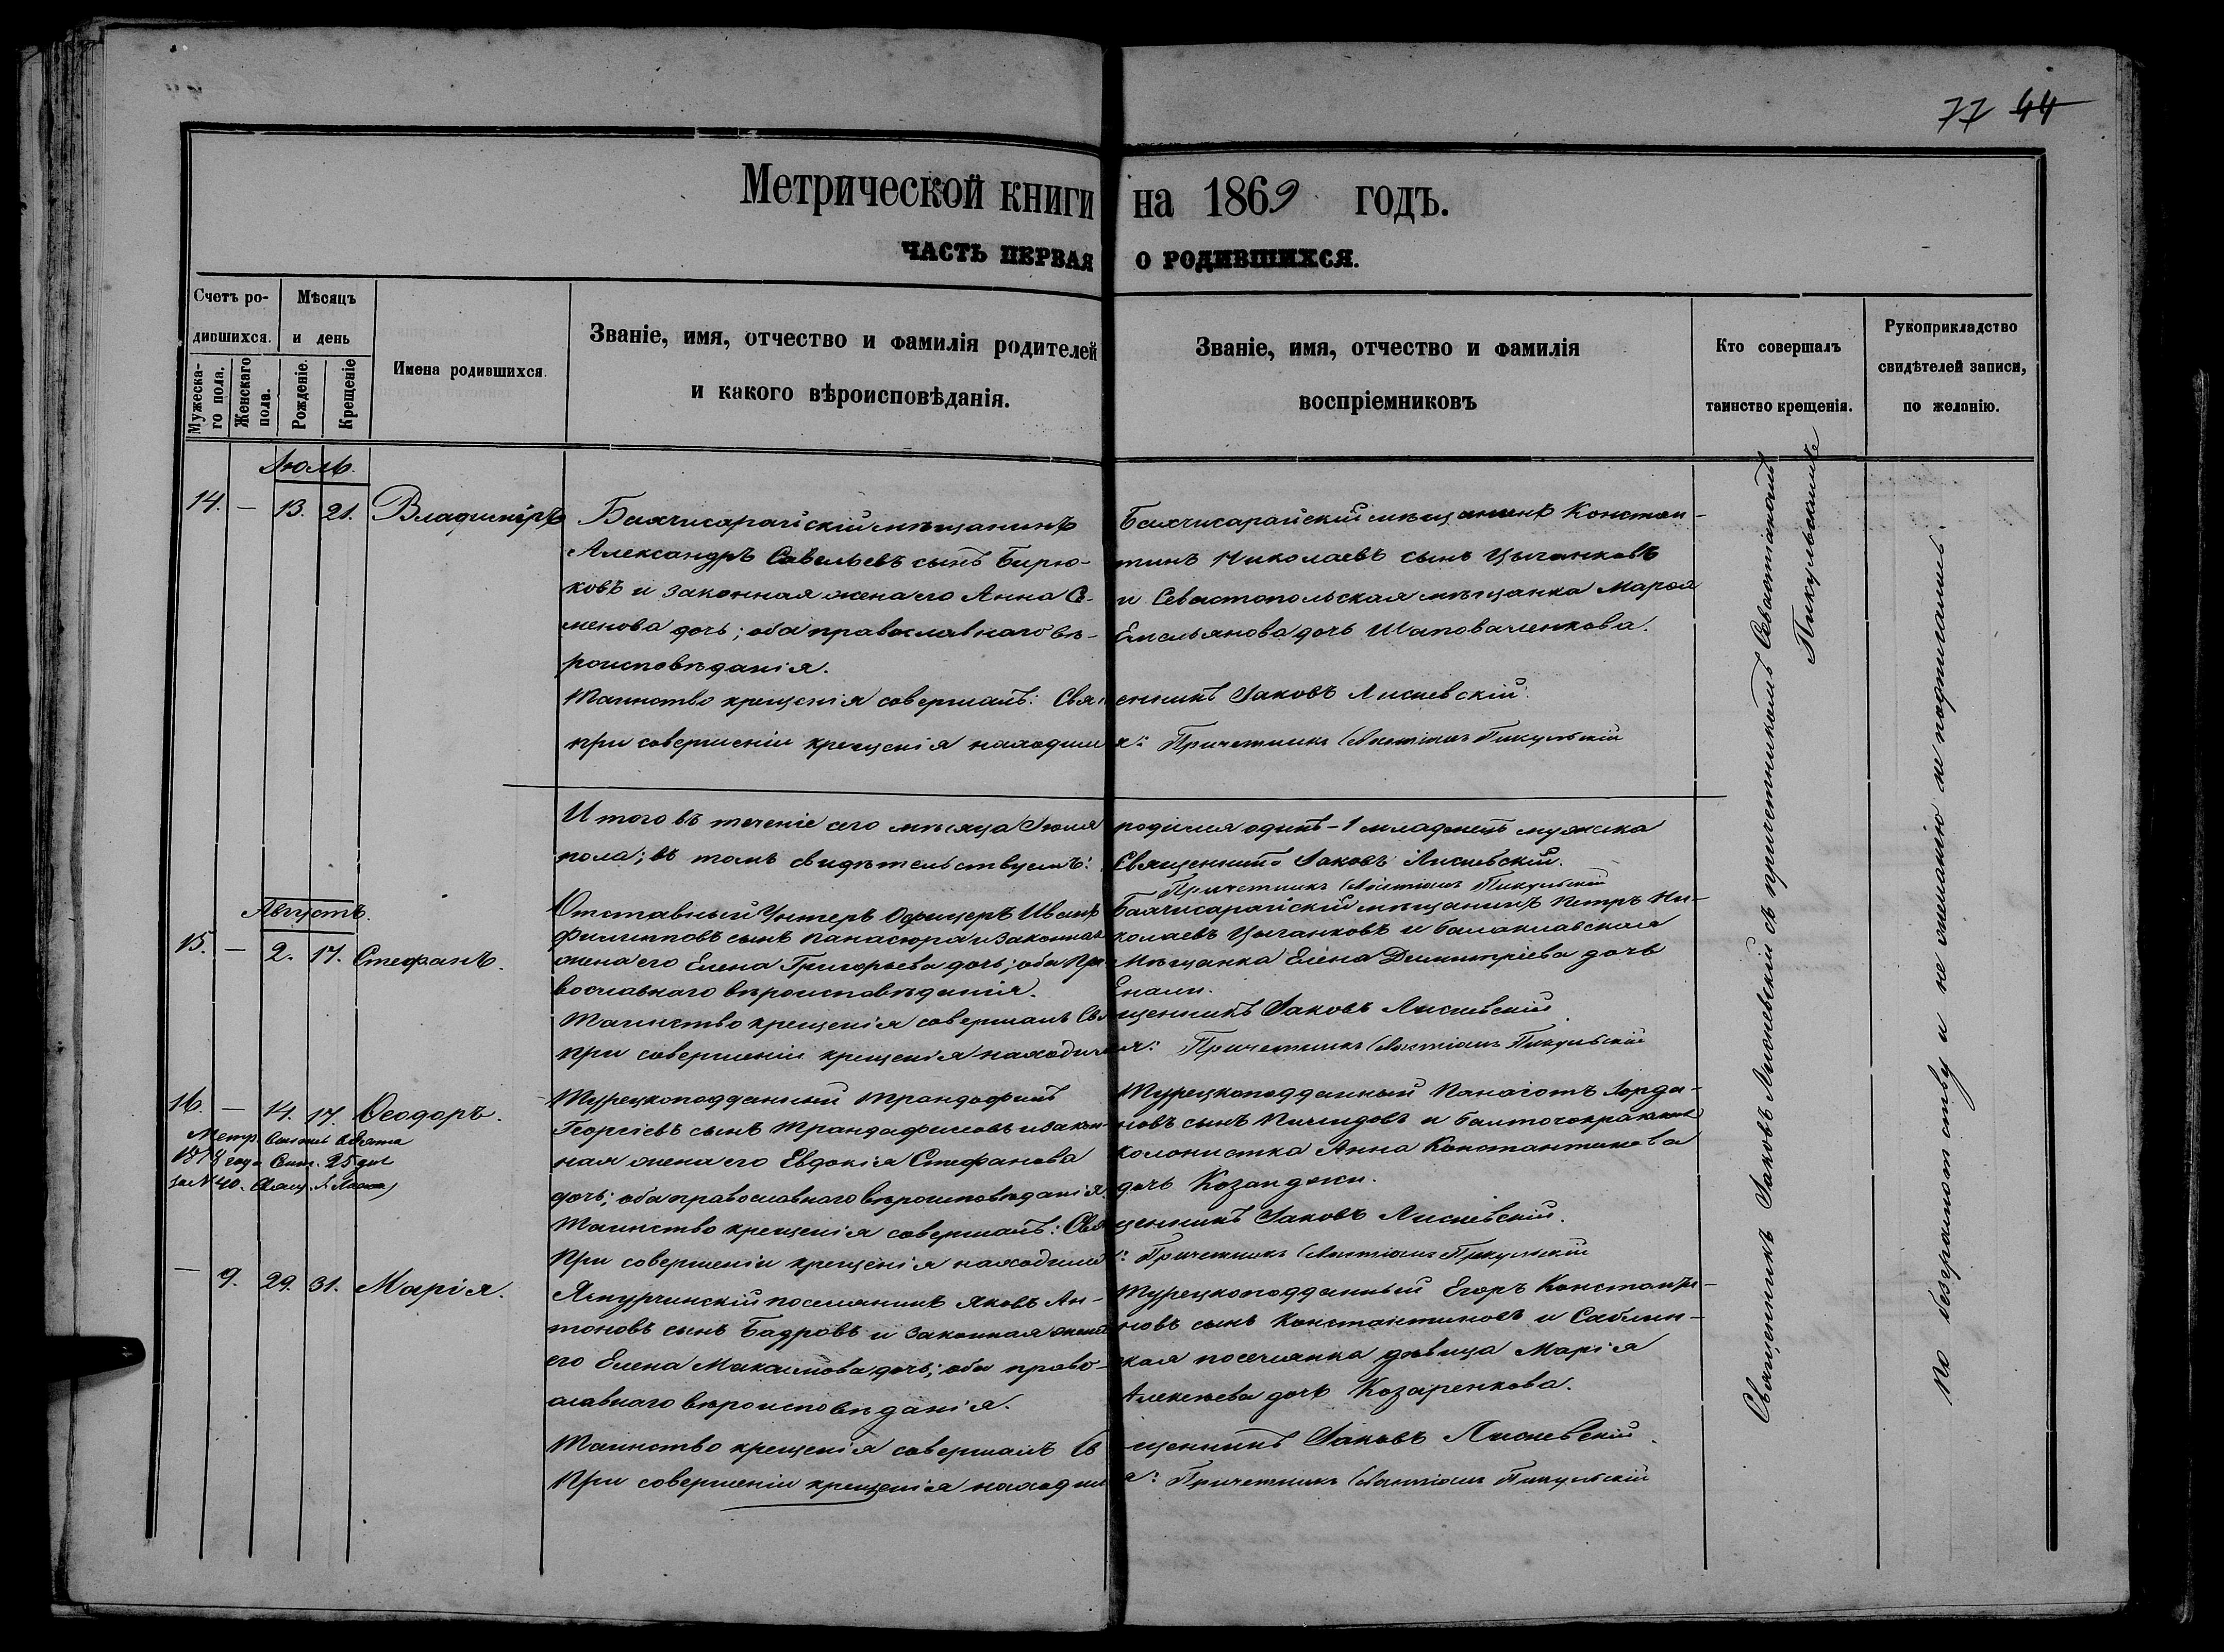 77 44
Метрической книги на 1869 годъ.
ЧАСТЬ ПЕРВАЯ О РОДИВШИХСЯ.
Счетъ ро-
дившихся.
Мужеска-
го пола.
Женскаго
пола.
Мѣсяцъ
и день
Рожденіе.
Крещеніе
Имена родившихся.
Званіе, имя, отчество и фамилія родителей
и какого вѣроисповѣданія.
Званіе, имя, отчество и фамилія
воспріемниковъ
Кто совершалъ
таинство крещенія.
Рукоприкладство
свидѣтелей записи,
по желанію.
Іюль.
14. — 13. 21. Владиміръ
Бахчисарайскій мѣщанинъ
Александръ Савельевъ сынъ Бирю-
ковъ и законная жена его Анна Се-
менова дочь; оба православнаго вѣ-
роисповѣданія.
Бахчисарайскій мѣщанинъ Констан-
тинъ Николаевъ сынъ Цыганковъ
и Севастопольская мѣщанка Марѳа
Емельянова дочь Шаповаленкова.
Таинство крещенія совершалъ: Священникъ Іаковъ Лисневскій.
при совершеніи крещенія находился: Причетникъ Севастіанъ Пикульскій
Итого въ теченіе сего мѣсяца Іюля родился одинъ - 1 младенецъ мужска
пола; въ томъ свидѣтельствуемъ: Священникъ Іаковъ Лисневскій.
Причетникъ Севастіанъ Пикульскій
Августъ.
15. — 2. 17. Стефанъ.
Отставный Унтеръ Офицеръ Иванъ
Филипповъ сынъ Панасюра и законная
жена его Елена Григорьева дочь; оба пра-
вославнаго вѣроисповѣданія.
Бахчисарайскій мѣщанинъ Петръ Ни-
колаевъ Цыганковъ и Балаклавская
Мѣщанка Елена Димитріева дочь
Таинство крещенія совершалъ Священникъ Іаковъ Лисневскій.
при совершеніи крещенія находился: Причетникъ Севастіанъ Пикульскій
16. — 14. 17. Ѳеодоръ.
за № 40.
Турецкоподданный Трандафилъ
Георгіевъ сынъ Трандафиловъ и закон-
ная жена его Евдокія Стефанова
дочь; оба православнаго вѣроисповѣданія.
Турецкоподданный Панаіотъ Іорда-
новъ сынъ
колонистка Анна Константинова
дочь Козанджи.
Таинство крещенія совершалъ: Священникъ Іаковъ Лисневскій.
При совершеніи крещенія находился: Причетникъ Севастіанъ Пикульскій
— 9. 29. 31. Марія.
поселянинъ Яковъ Ан-
тоновъ сынъ Бадровъ и законная жена
его Елена Максимова дочь; оба право-
славнаго вѣроисповѣданія.
Турецкоподданный Егоръ Константи-
новъ сынъ Константиновъ и Саблин-
ская поселянка дѣвица Марія
Алексѣева дочь Козаренкова.
Таинство крещенія совершалъ Священникъ Іаковъ Лисневскій.
При совершеніи крещенія находился: Причетникъ Севастіанъ Пикульскій
Священникъ Іаковъ Лисневскій съ причетникомъ Севастіаномъ
Пикульскимъ
По безграмотству и не желанію не подписались.